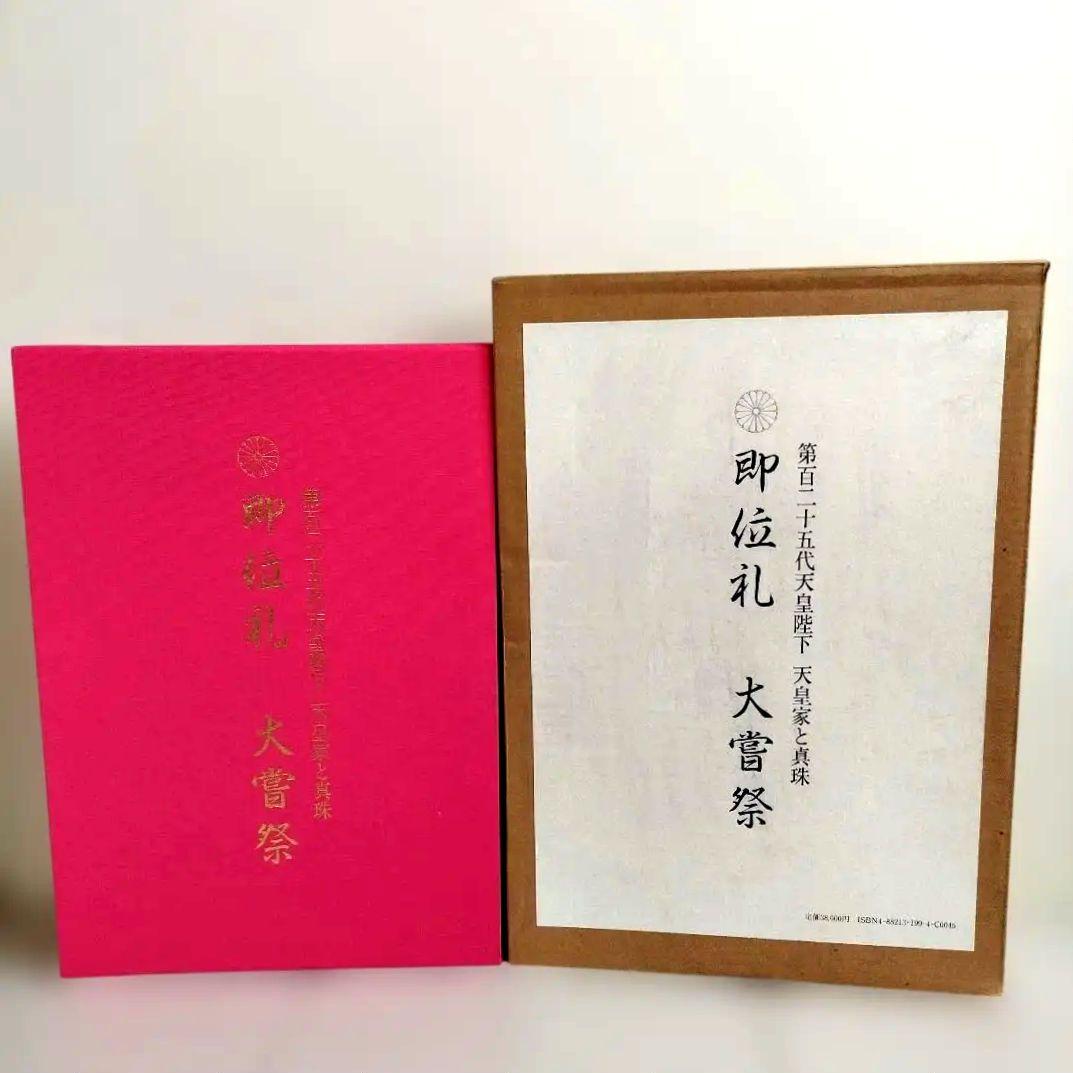 第百二十五代天皇陛下 天皇家と真珠
即位礼 大嘗祭
第百二十五代天皇陛下 天皇家と真珠
即位礼 大嘗祭
定価38,000円 ISBN4-88213-199-4-C0045